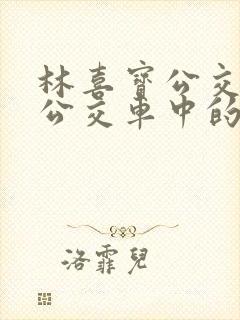 林喜寶公交
公交車中的
洛霏兒